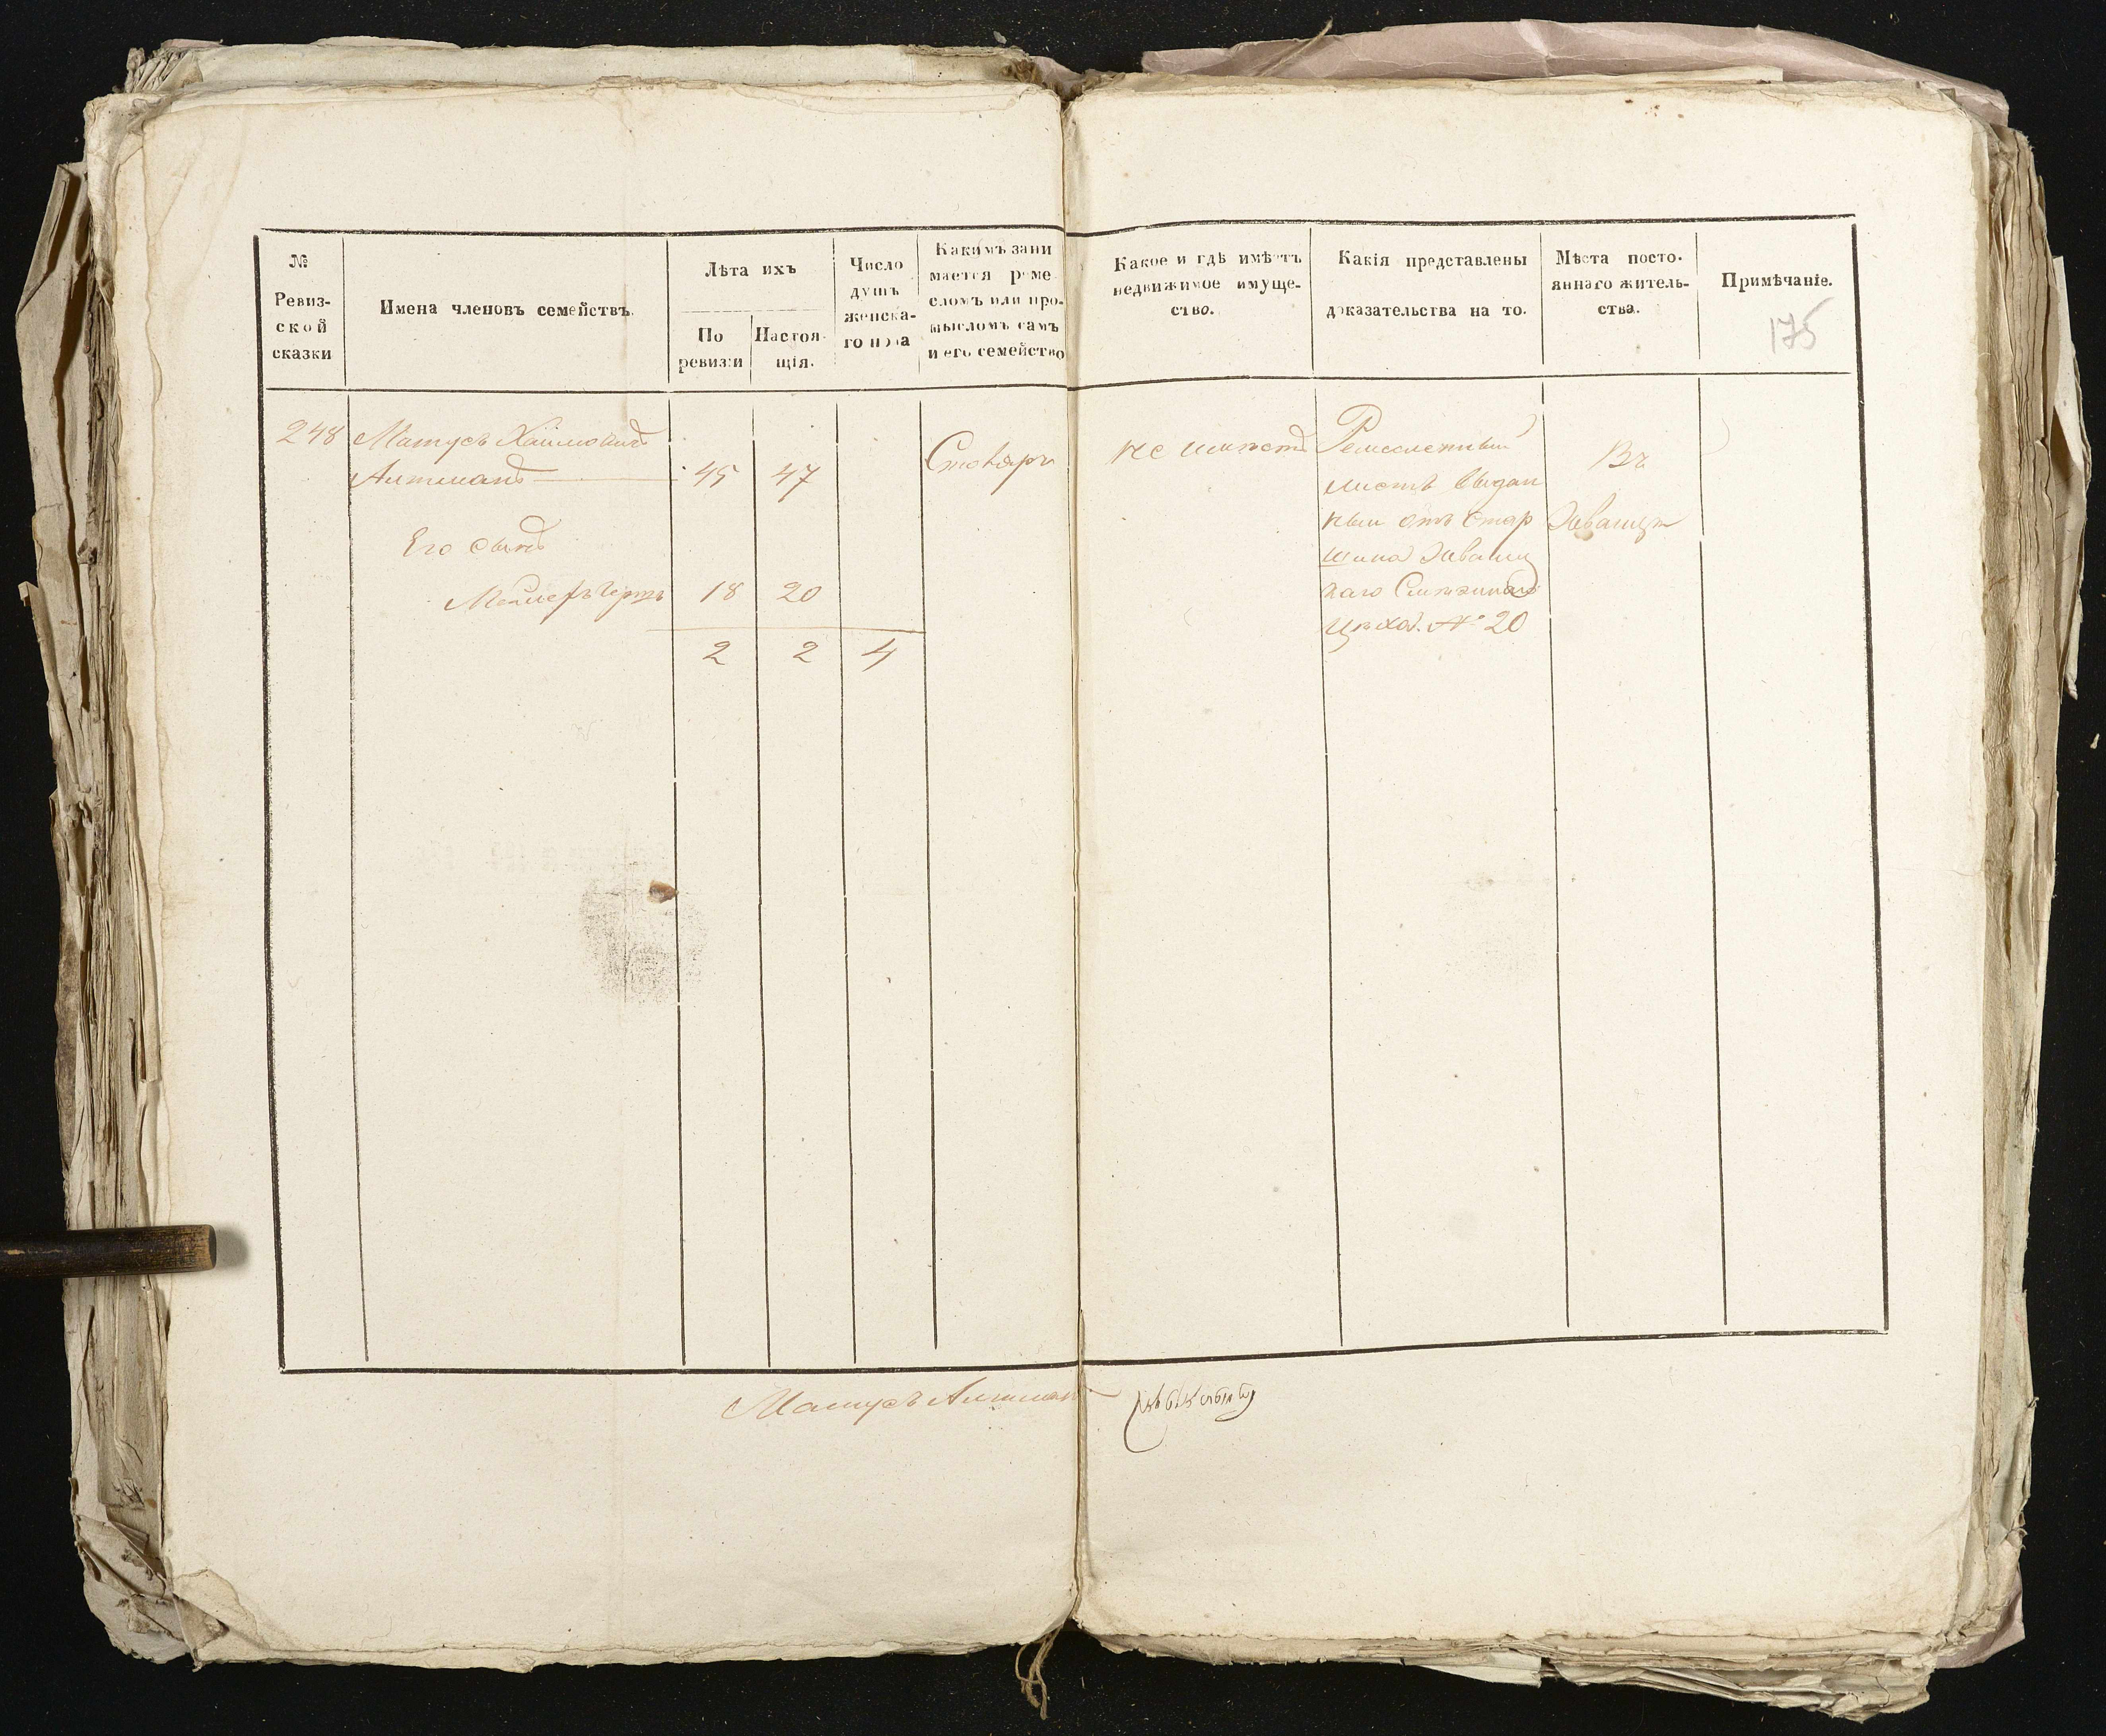 №
Ревиз-
ской
сказки
Имена членовъ семействъ.
Лѣта ихъ
По
ревизіи
Настоя-
щія.
Число
душъ
женска-
го пола
Какимъ зани
мается реме-
сломъ или про-
мысломъ самъ
и его семейство
Какое и гдѣ имѣетъ
недвижимое имуще-
ство.
Какія представлены
доказательства на то.
Мѣста посто-
яннаго житель-
ства.
Примѣчаніе.
175
248
Матусъ Хаимовичъ
Алтманъ
45
47
Столяръ
не имѣетъ
Ремесленный
листъ выдан
ный отъ стар
шина
каго
Цѣха. № 20
Въ
Его сынъ
18
20
2
2
4
Матусъ Алтман